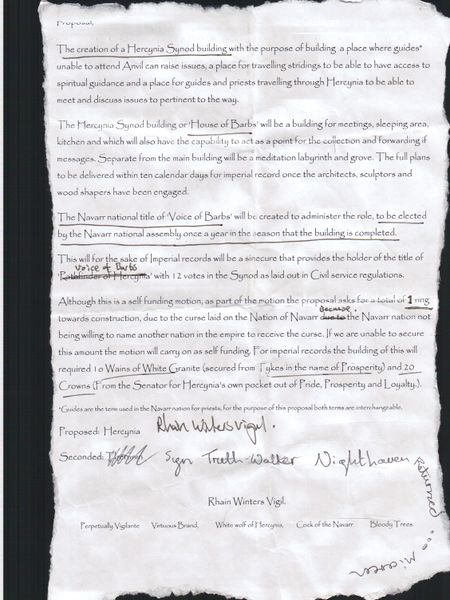 Proposal,
The creation of a Hercynia Synod building with the purpose of building a place where guides*
unable to attend Anvil can raise issues, a place for travelling stridings to be able to have access to
spiritual guidance and a place for guides and priests travelling through Hercynia to be able to
meet and discuss issues to pertinent to the way.
The Hercynia Synod building or 'House of Barbs' will be a building for meetings, sleeping area,
kitchen and which will also have the capability to act as a point for the collection and forwarding if
messages. Separate from the main building will be a meditation labyrinth and grove. The full plans
to be delivered within ten calendar days for imperial record once the architects, sculptors and
wood shapers have been engaged.
The Navarr national title of 'Voice of Barbs' will be created to administer the role, to be elected
by the Navarr national assembly once a year in the season that the building is completed.
This will for the sake of Imperial records will be a sinecure that provides the holder of the title of
Voice of Barbs
'Pathfinder of Hercynia' with 12 votes in the Synod as laid out in Civil service regulations.
Although this is a self funding motion, as part of the motion the proposal asks for a total of 1 ring
because.
towards construction, due to the curse laid on the Nation of Navarr due to the Navarr nation not
being willing to name another nation in the empire to receive the curse. If we are unable to secure
this amount the motion will carry on as self funding. For imperial records the building of this will
required 10 Wains of White Granite (secured from Tykes in the name of Prosperity) and 20
Crowns (From the Senator for Hercynia's own pocket out of Pride, Prosperity and Loyalty.).
*Guides are the term used in the Navarr nation for priests, for the purpose of this proposal both terms are interchangeable.
Proposed: Hercynia Rhain Winters Vigil.
Seconded: Sign Truth-Walker Nighthaven
Returned ...
Rhain Winters Vigil.
Perpetually Vigilante Virtuous Brand, White wolf of Hercynia, Cock of the Navarr Bloody Trees.